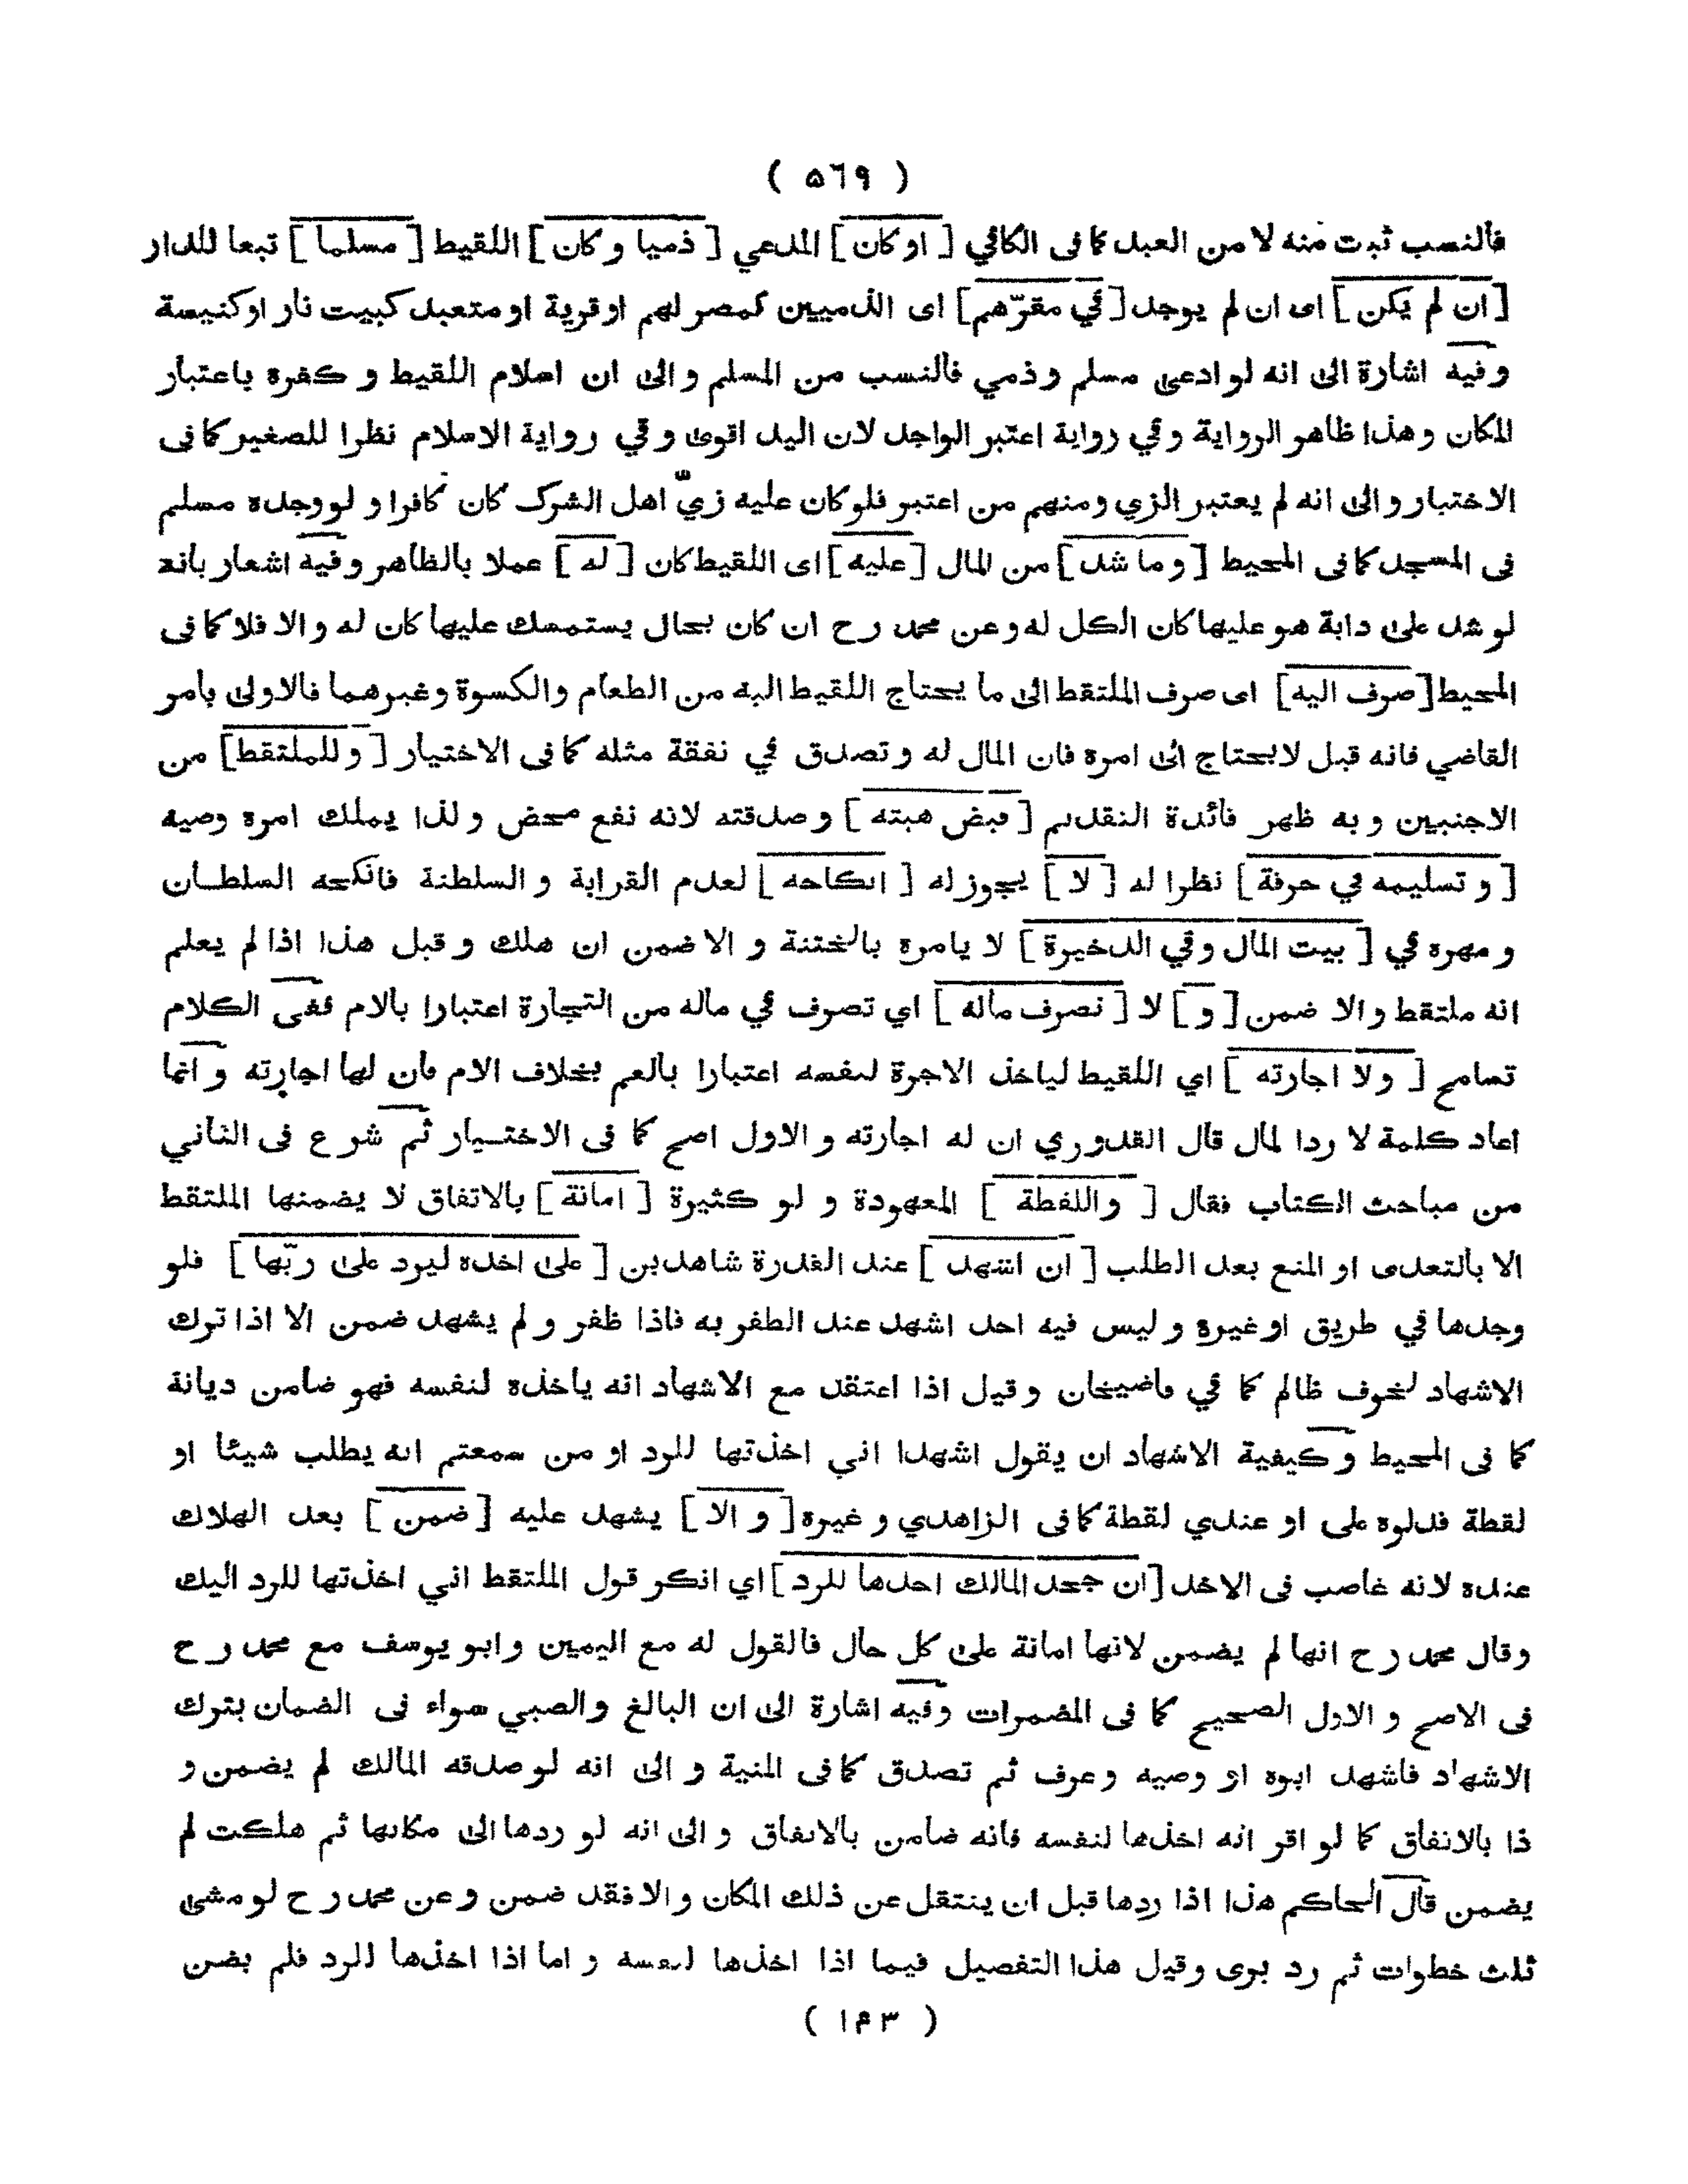 ( ٥٦٩ )
فالنسب ثبت منه لا من العبد كما فى الكافي [ او كان ] المدعي [ ذميا و كان ] اللقيط [ مسلما ] تبعا للدار
[ ان لم يكن ] اى ان لم يوجد [ في مقرّهم ] اى الذميين كمصر لهم او قرية او متعبد كبيت نار او كنيسة
و فيه اشارة الى انه لو ادعى مسلم و ذمي فالنسب من المسلم و الى ان اسلام اللقيط و كفره باعتبار
المكان و هذا ظاهر الرواية و في رواية اعتبر الواجد لان اليد اقوى و في رواية الاسلام نظرا للصغير كما فى
الاختيار و الى انه لم يعتبر الزي و منهم من اعتبر فلو كان عليه زيّ اهل الشرك كان كافرا و لو وجده مسلم
فى المسجد كما فى المحيط [ و ما شد ] من المال [ عليه ] اى اللقيط كان [ له ] عملا بالظاهر و فيه اشعار بانه
لو شد على دابة هو عليها كان الكل له و عن محمد رح ان كان بحال يستمسك عليها كان له و الا فلا كما فى
المحيط [ صرف اليه ] اى صرف الملتقط الى ما يحتاج اللقيط اليه من الطعام والكسوة وغيرهما فالاولى بامر
القاضي فانه قيل لا يحتاج الى امره فان المال له و تصدق في نفقة مثله كما فى الاختيار [ و للملتقط ] من
الاجنبيين و به ظهر فائدة التقديم [ قبض هبته ] و صدقته لانه نفع محض و لذا يملك امره وصيه
[ و تسليمه في حرفة ] نظرا له [ لا ] يجوز له [ انكاحه ] لعدم القرابة و السلطنة فانكحه السلطان
و مهره في [ بيت المال وفي الدخيرة ] لا يامره بالختنة و الا ضمن ان هلك و قيل هذا اذا لم يعلم
انه ملتقط و الا ضمن [ و ] لا [ تصرف ماله ] اي تصرف في ماله من التجارة اعتبارا بالام ففى الكلام
تسامح [ ولا اجارته ] اي اللقيط لياخذ الاجرة لنفسه اعتبارا بالعم بخلاف الام فان لها اجارته و انما
اعاد كلمة لا ردا لمال قال القدوري ان له اجارته و الاول اصح كما فى الاختيار ثم شرع فى الثاني
من مباحث الكتاب فقال [ واللقطة ] المعهودة و لو كثيرة [ امانة ] بالاتفاق لا يضمنها الملتقط
الا بالتعدى او المنع بعد الطلب [ ان اشهد ] عند القدرة شاهدين [ على اخذه ليرد على ربّها ] فلو
وجدها في طريق او غيره و ليس فيه احد اشهد عند الظفر به فاذا ظفر و لم يشهد ضمن الا اذا ترك
الاشهاد لخوف ظالم كما في قاضيخان و قيل اذا اعتقد مع الاشهاد انه ياخذه لنفسه فهو ضامن ديانة
كما فى المحيط و كيفية الاشهاد ان يقول اشهدا اني اخذتها للرد او من سمعتم انه يطلب شيئا او
لقطة فدلوه على او عندي لقطة كما فى الزاهدي و غيره [ و الا ] يشهد عليه [ ضمن ] بعد الهلاك
عنده لانه غاصب فى الاخذ [ ان جحد المالك اخذها للرد ] اي انكر قول الملتقط اني اخذتها للرد اليك
وقال محمد رح انها لم يضمن لانها امانة على كل حال فالقول له مع اليمين و ابو يوسف مع محمد رح
فى الاصح و الاول الصحيح كما فى المضمرات و فيه اشارة الى ان البالغ و الصبي سواء فى الضمان بترك
الاشهاد فاشهد ابوه او وصيه و عرف ثم تصدق كما فى المنية و الى انه لو صدقه المالك لم يضمن و
ذا بالاتفاق كما لو اقر انه اخذها لنفسه فانه ضامن بالاتفاق و الى انه لو ردها الى مكانها ثم هلكت لم
يضمن قال الحاكم هذا اذا ردها قبل ان ينتقل عن ذلك المكان و الا فقد ضمن و عن محمد رح لو مشى
ثلث خطوات ثم رد برى و قيل هذا التفصيل فيما اذا اخذها لنفسه و اما اذا اخذها للرد فلم يضمن
( ١٤٣ )